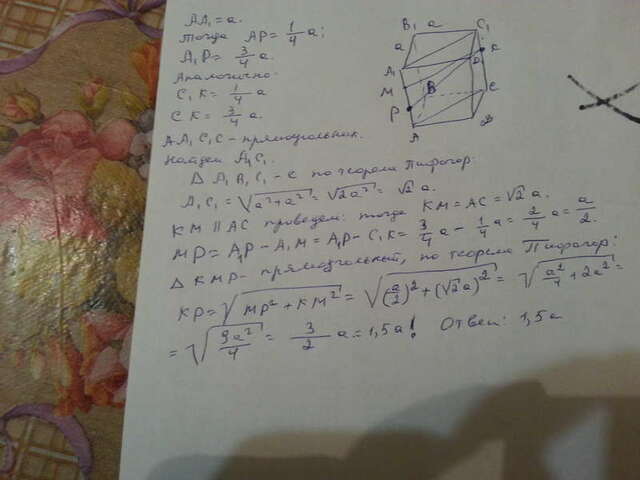 AA₁ = a.
тогда AP = 1/4 a;
A₁P = 3/4 a.
Аналогично:
C₁K = 1/4 a
CK = 3/4 a.
AA₁C₁C - прямоугольник.
Найдем A₁C₁.
Δ A₁B₁C₁ - по теореме Пифагор:
A₁C₁ = √(a²+a²) = √(2a²) = √2 a.
KM || AC проведем: тогда KM = AC = √2 a.
MP = A₁P - A₁M = A₁P - C₁K = 3/4 a - 1/4 a = 2/4 a = a/2.
Δ KMP - прямоугольный, по теореме Пифагор:
KP = √(MP² + KM²) = √((a/2)² + (√2 a)²) = √(a²/4 + 2a²) =
= √(9a²/4) = 3/2 a = 1,5a! Ответ: 1,5a
B₁ a C₁
a
K
A₁
D
M
B
C
P
A